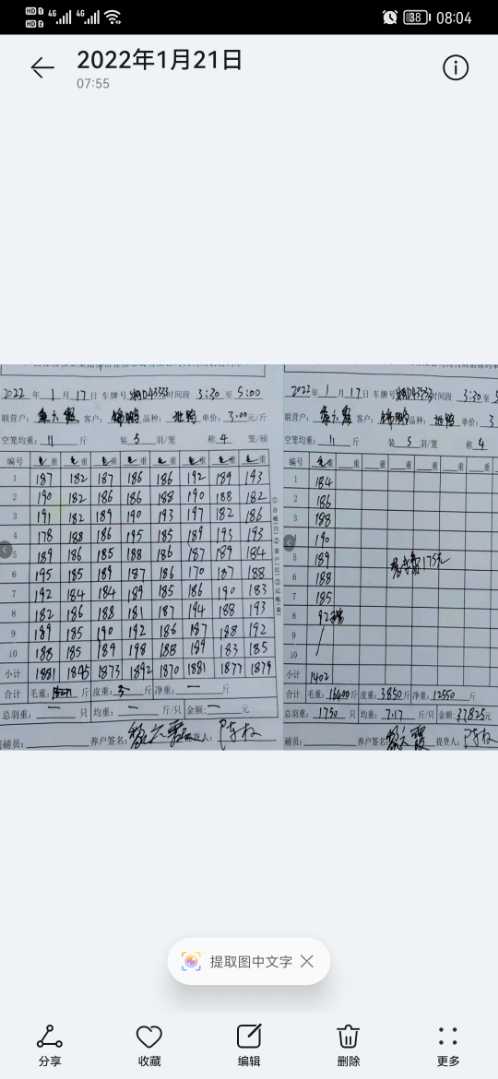 08:04
2022年1月21日
07:55
2022年1月17日 车牌号 时间段 3:30至5:00
联营户: 客户: 品种: 单价:3.00元/斤
空笼均重:11斤 装5羽/笼 称4笼/磅
编号 毛重 毛重 毛重 毛重 毛重 毛重 毛重 毛重
1 187 182 187 186 186 192 189 193
2 190 182 186 186 188 190 188 182
3 191 182 189 190 193 197 182 186
4 178 188 186 195 185 189 193 193
5 189 186 185 188 186 187 189 184
6 195 185 189 187 186 170 187 188
7 192 184 184 189 185 186 190 183
8 182 186 188 181 187 194 188 193
9 189 185 190 192 186 187 188 192
10 188 185 189 198 188 189 183 185
小计 1881 1845 1873 1892 1870 1881 1877 1879
合计 毛重: 斤 皮重: 斤 净重:一斤
总羽重:一只 均重:一斤/只 金额:一元
司磅员: 养户签名: 提货人:
2022年1月17日 车牌号 时间段 3:30至5
联营户: 客户: 品种: 单价:3
空笼均重:11斤 装5羽/笼 称4
编号 毛重 重 重 重 重 重
1 184
2 186
3 188
4 190
5 189 175元
6 188
7 185
8 92
9
10
小计 1402
合计 毛重:16400斤 皮重:3850斤 净重:12550斤
总羽重:1750只 均重:7.17斤/只 金额:37825元
磅员: 养户签名: 提货人:
提取图中文字
分享 收藏 编辑 删除 更多